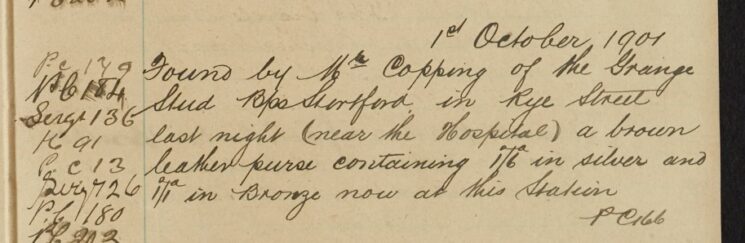 1st October 1901
Found by Mr Copping of the Grange
Stud Bps Stortford in Rye Street
last night (near the Hospital) a brown
leather purse containing 1/6d in silver and
1/1d in Bronze now at this Station
PC166
Pc 179
PC 184
Sergt 136
H 91
Pc C 13
Sergt 726
P.C 180
PC 203